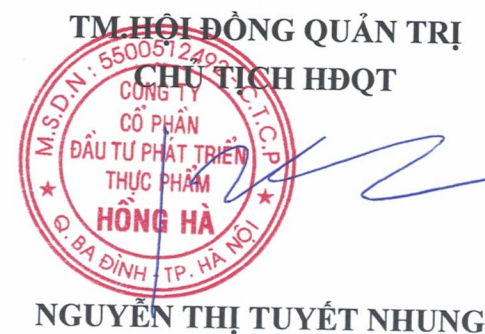 TM.HỘI ĐỒNG QUẢN TRỊ
CHỦ TỊCH HĐQT
M.S.D.N: 5500512492 C.T.C.P
CÔNG TY
CỔ PHẦN
ĐẦU TƯ PHÁT TRIỂN
THỰC PHẨM
HỒNG HÀ
Q. BA ĐÌNH - TP. HÀ NỘI
NGUYỄN THỊ TUYẾT NHUNG